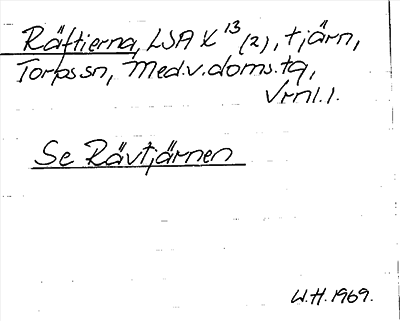 Räftierna, LSA X 13 (2), tjärn,
Torps sn, Med.v.doms.tg,
Vrml.l.
Se Rävtjärnen
W.H. 1969.